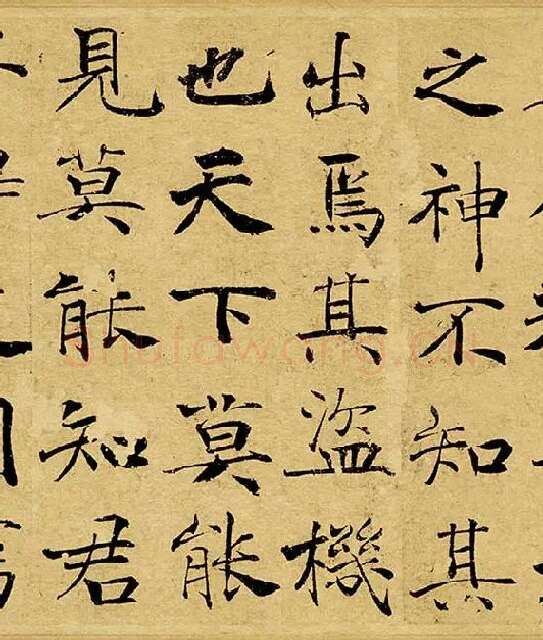 之神不知其
出焉其盜機
也天下莫能
見莫能知君